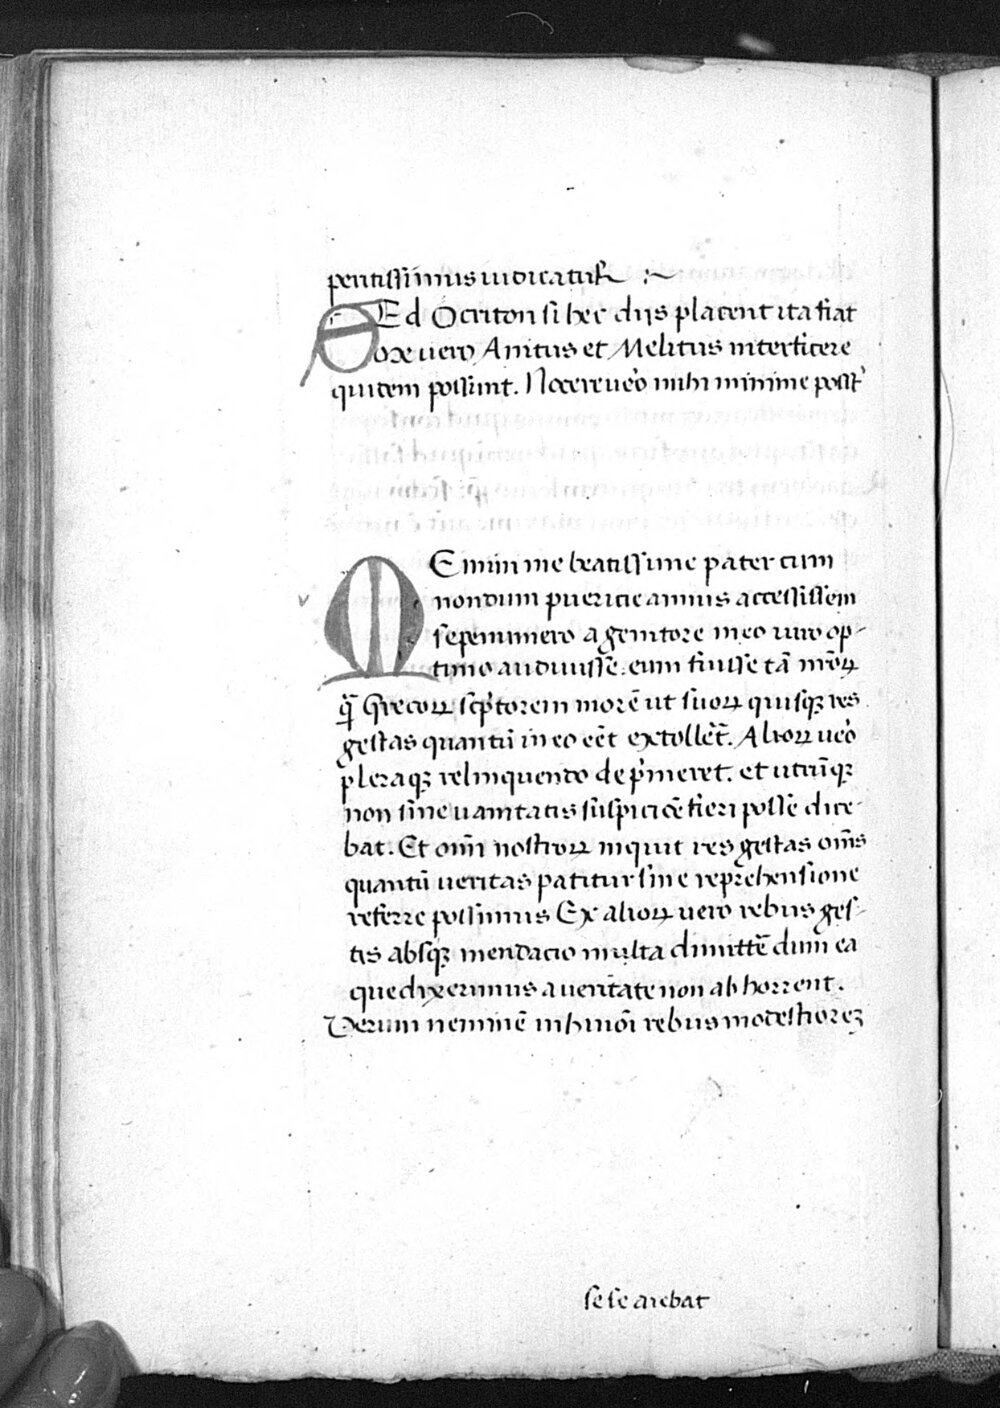 pentissimus iudicatur :~
SEd O criton si hec diis placent ita fiat
oxe uero Anitus et Melitus interficere
quidem possunt. Nocere ueō mihi minime posst̄
v
MEmini me beatissime pater cum
nondum puericie annus accessissem
sepenumero a genitore meo uiro op-
timo audiuisse: eum fuisse tā mrōꝝ
qͣ̄ Grecoꝝ scpͥtorem morē ut suoꝝ quisqꝫ res
gestas quantū in eo eēt extollēt. Alioꝝ ueō
pleraqꝫ relinquendo depͥmeret. et utrūqꝫ
non sine uanitatis suspiciōe fieri posse dice-
bat. Et om̄i nostroꝝ inquit res gestas om̄s
quantū ueritas patitur sine reprehensione
referre possimus Ex alioꝝ uero rebus ges-
tis absqꝫ mendacio multa dimittēdum ea
que dixerimus a ueritate non abhorrent.
Verum neminē inhmōi rebus modestiorez
se se arebat